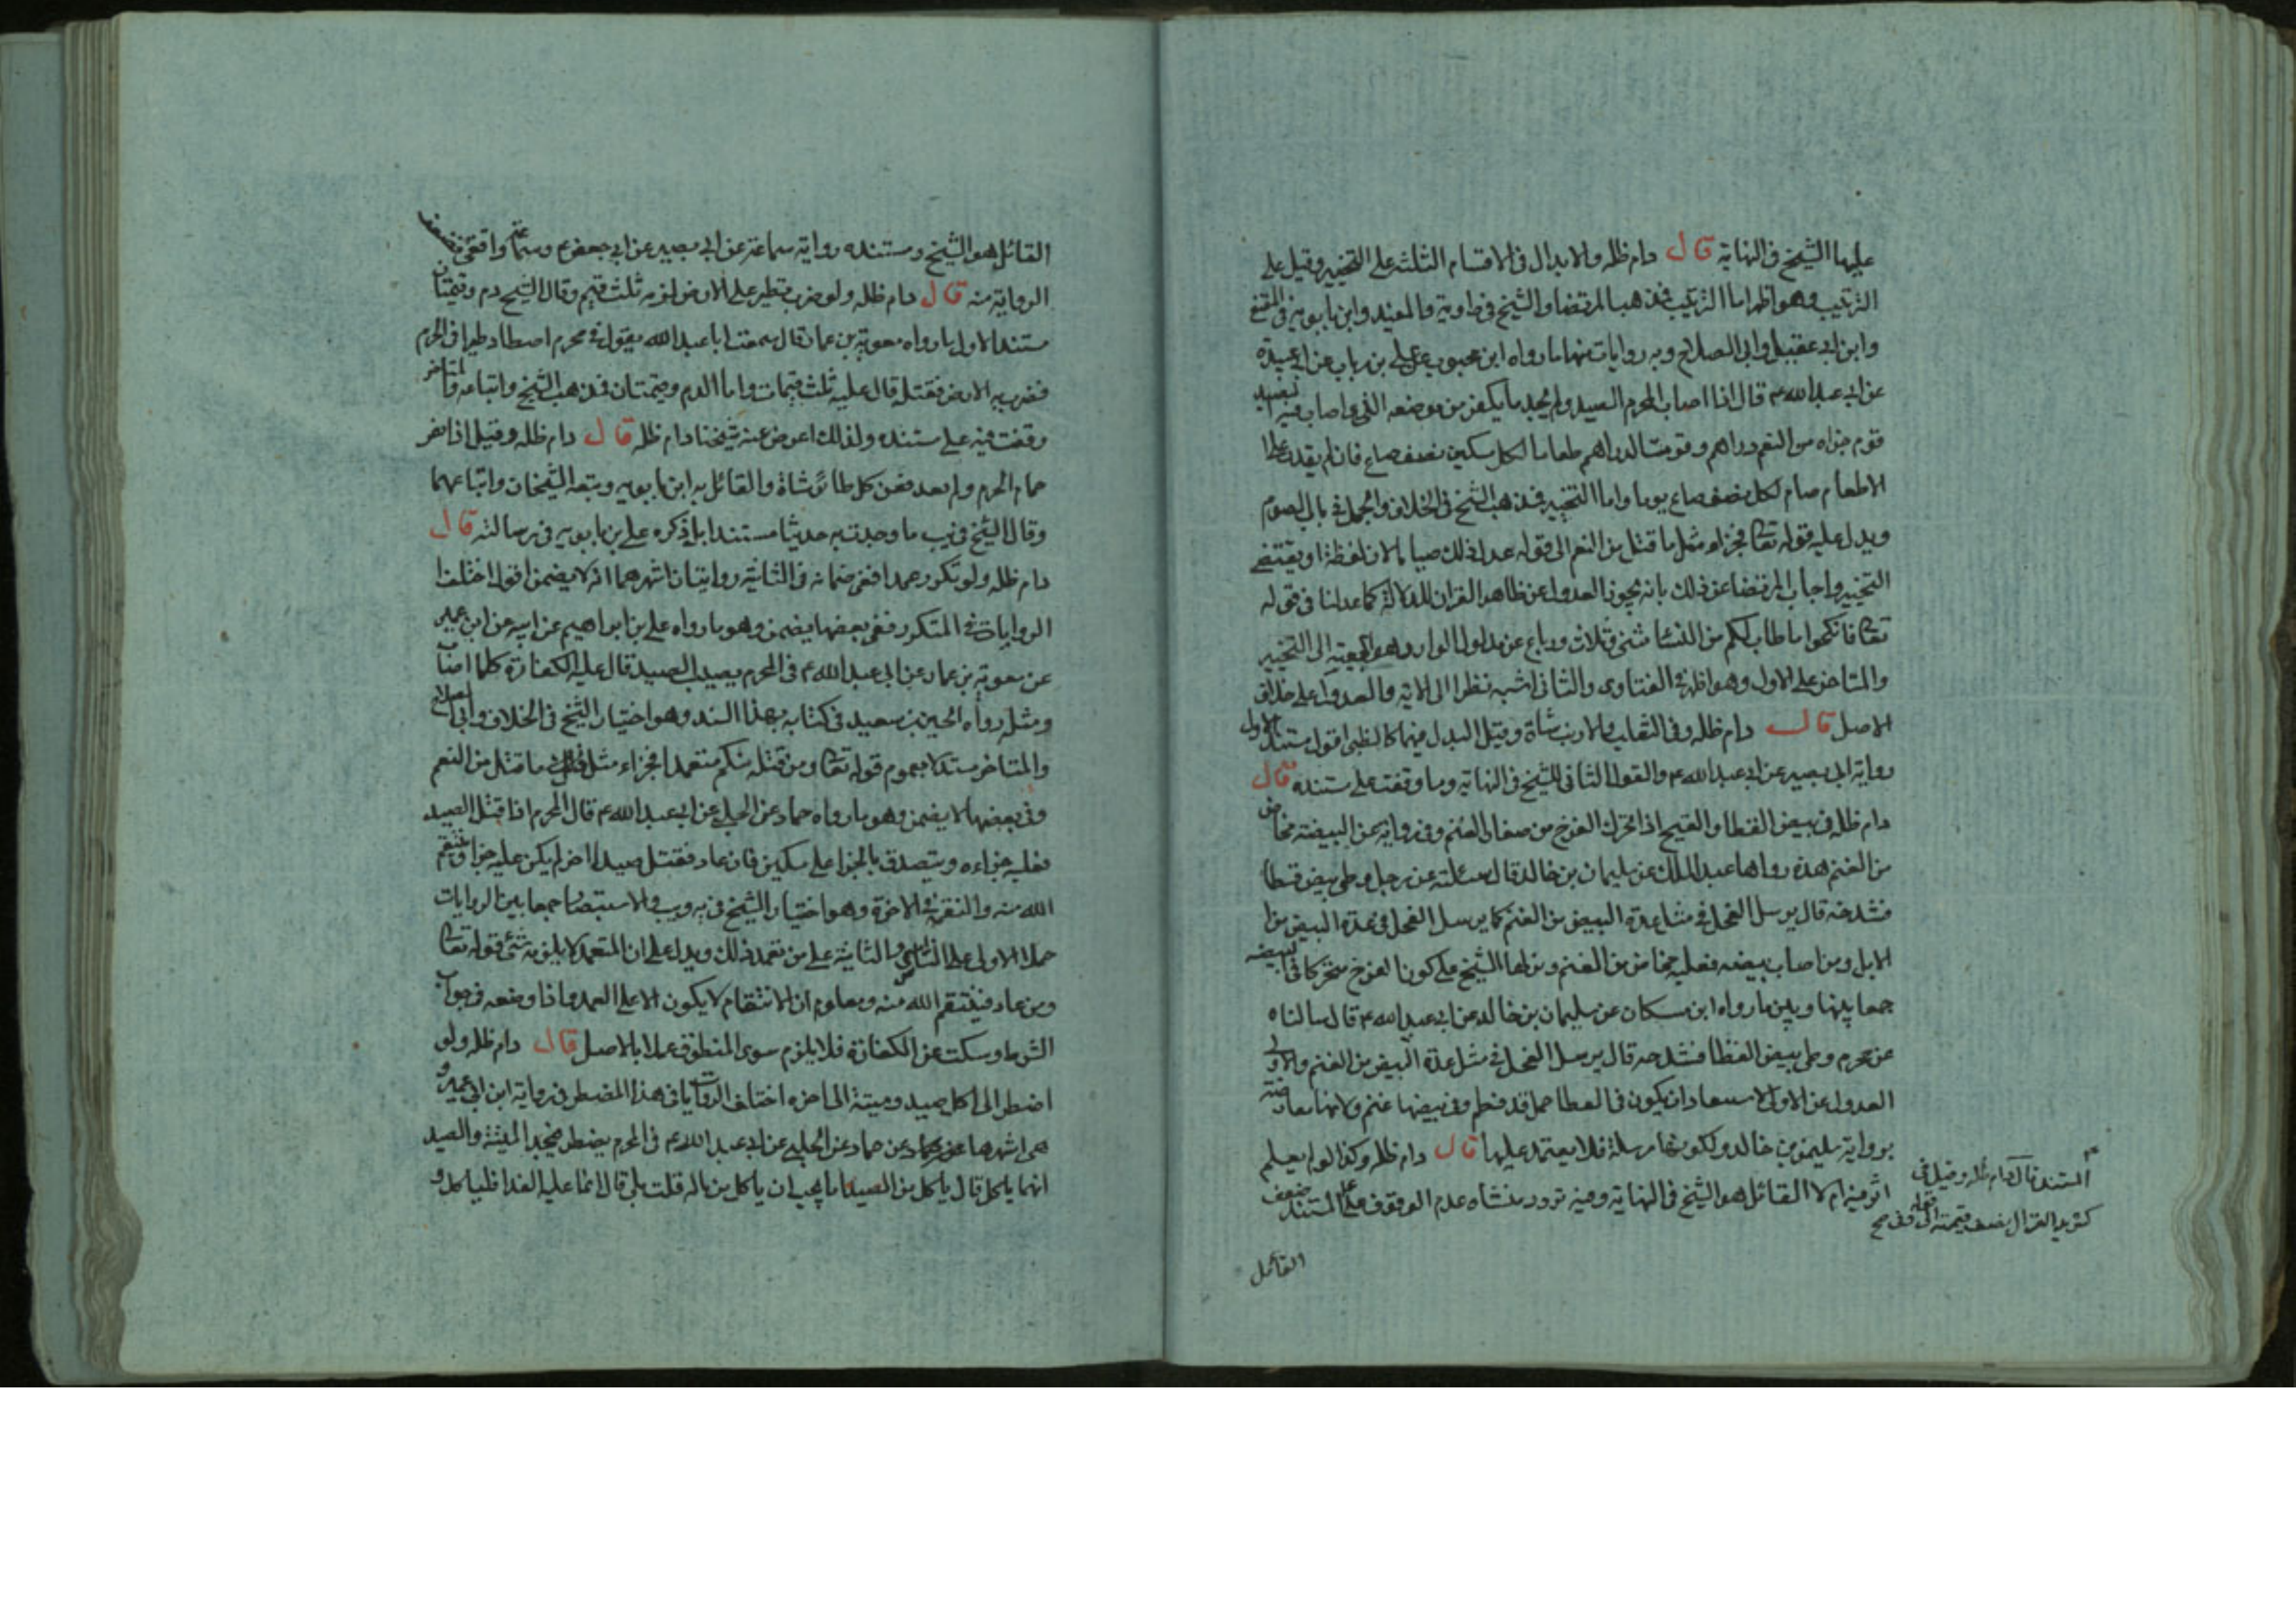 عليها الشيخ في النهاية قال دام ظله والابدال في الاقسام الثلثة على التخيير وقيل على
الترتيب وهو اظهر اما الترتيب فمذهب المرتضى والشيخ في فتاويه والمفيد وابن بابويه في المقنع
وابن ابي عقيل وابي الصلاح وبه روايات منها ما رواه ابن محبوب عن علي بن رياب عن ابي عبيدة
عن ابي عبد الله ع قال اذا اصاب المحرم الصيد ولم يجد ما يكفر من موضعه الذي اصاب فيه الصيد
قوم جزاه من النعم دراهم وقومت الدراهم طعاما لكل مسكين نصف صاع فان لم يقدر على
الاطعام صام لكل نصف صاع يوما واما التخيير فمذهب الشيخ في الخلاف والجمل في باب الصوم
ويدل عليه قوله تعالى فجزاء مثل ما قتل من النعم الى قوله عدل ذلك صياما لان لفظة او يقتضي
التخيير واجاب المرتضى عن ذلك بانه يجوز العدول عن ظاهر القران للدلالة كما عدلنا في قوله
تعالى فانكحوا ما طاب لكم من النساء مثنى وثلاث ورباع عن مدلول الواو وهو الجمعية الى التخيير
والمتاخر على الاول وهو اظهر في الفتاوى والثاني اشبه نظرا الى الاية والعدول على خلاف
الاصل قال دام ظله وفي الثعلب والارنب شاة وقيل البدل فيهما كالظبي اقول مستند الاول
رواية ابي بصير عن ابي عبد الله ع والقول الثاني للشيخ في النهاية وما وقفت على مستنده قال
دام ظله في بيض القطا والقبج اذا تحرك الفرخ من صغار الغنم وفي رواية عن البيضة مخاض
من الغنم هذه رواها عبد الملك عن سليمان بن خالد قال سئلته عن رجل وطى بيض قطا
فشدخه قال يرسل الفحل في مثل عدة البيض من الغنم كما يرسل الفحل في عدة البيض من
الابل ومن اصاب بيضه فعليه مخاض من الغنم ونزلها الشيخ على كون الفرخ متحركا في البيضه
جمعا بينها وبين ما رواه ابن مسكان عن سليمان بن خالد عن ابي عبد الله ع قال سالناه
عن محرم وطى بيض القطا فشدخه قال يرسل الفحل في مثل عدة البيض من الغنم والاولى
العدول عن الاول لاستبعاد ان يكون في القطا حمل قد فطم وفي بيضها غنم ولانها معارضة
برواية سليمن بن خالد ولكونها مرسلة فلا يعتمد عليها قال دام ظله وكذا لو لم يعلم
اثر فيه ام لا القائل هو الشيخ في النهاية وفيه تردد منشاه عدم الوقوف على المستند
المستند قال دام ظله وقيل في
كسر يد الغزال نصف قيمته
القائل
القائل هو الشيخ ومستنده رواية سماعة عن ابي بصير عن ابي جعفر ع وسماعة واقفي
الرواية منه قال دام ظله ولو ضرب بطير على الارض لزمه ثلث قيم وقال الشيخ دم وقيمتان
مستند الاول ما رواه معوية بن عمار قال سمعت ابا عبد الله يقول في محرم اصطاد طيرا في الحرم
فضرب به الارض فقتله قال عليه ثلث قيمات واما الدم وقيمتان فمذهب الشيخ واتباعه وما
وقفت فيه على مستنده ولذلك اعرض عنه شيخنا دام ظله قال دام ظله وقيل اذا نفر
حمام الحرم ولم يعد فعن كل طائر شاة والقائل به ابن بابويه وتبعه الشيخان واتباعهما
وقال الشيخ في يب ما وجدت به حديثا مستندا بل ذكره علي بن بابويه في رسالته قال
دام ظله ولو تكرر عمدا ففي ضمانه في الثانية روايتان اشهرهما انه لا يضمن اقول اختلفت
الروايات في المتكرر ففي بعضها يضمن وهو ما رواه علي بن ابراهيم عن ابيه عن ابن ابي عمير
عن معوية بن عمار عن ابي عبد الله ع في المحرم يصيب الصيد قال عليه الكفارة كلما اصاب
ومثله رواه الحسين بن سعيد في كتابه بهذا السند وهو اختيار الشيخ في الخلاف وابي الصلاح
والمتاخر مستدلا بعموم قوله تعالى ومن قتله منكم متعمدا فجزاء مثل ما قتل من النعم
وفي بعضها لا يضمن وهو ما رواه حماد عن الحلبي عن ابي عبد الله ع قال المحرم اذا قتل الصيد
فعليه جزاءه ويتصدق بالجزا على مسكين فان عاد فقتل صيدا اخر لم يكن عليه جزاء وينتقم
الله منه والنقمة في الاخرة وهو اختيار الشيخ في يه ويب والاستبصار جمعا بين الروايات
حملا الاولى على الناسي والثانية على من تعمد ذلك ويدل على ان المتعمد لا يلزمه شئ قوله تعالى
ومن عاد فينتقم الله منه ومعلوم ان الانتقام لا يكون الا على العمد واذا وضعه في جواب
الشرط وسكت عن الكفارة فلا يلزم سوى المنطوق عملا بالاصل قال دام ظله ولو
اضطر الى اكل صيد وميتة الى اخره اختلف الروايات في هذا المضطر في رواية ابن ابي عمير و
هي اشهرها عن حماد عن الحلبي عن ابي عبد الله ع في المحرم يضطر فيجد الميتة والصيد
ايهما ياكل قال ياكل من الصيد اما يحب ان ياكل من ماله قلت بلى قال انما عليه الفدا فلياكل و